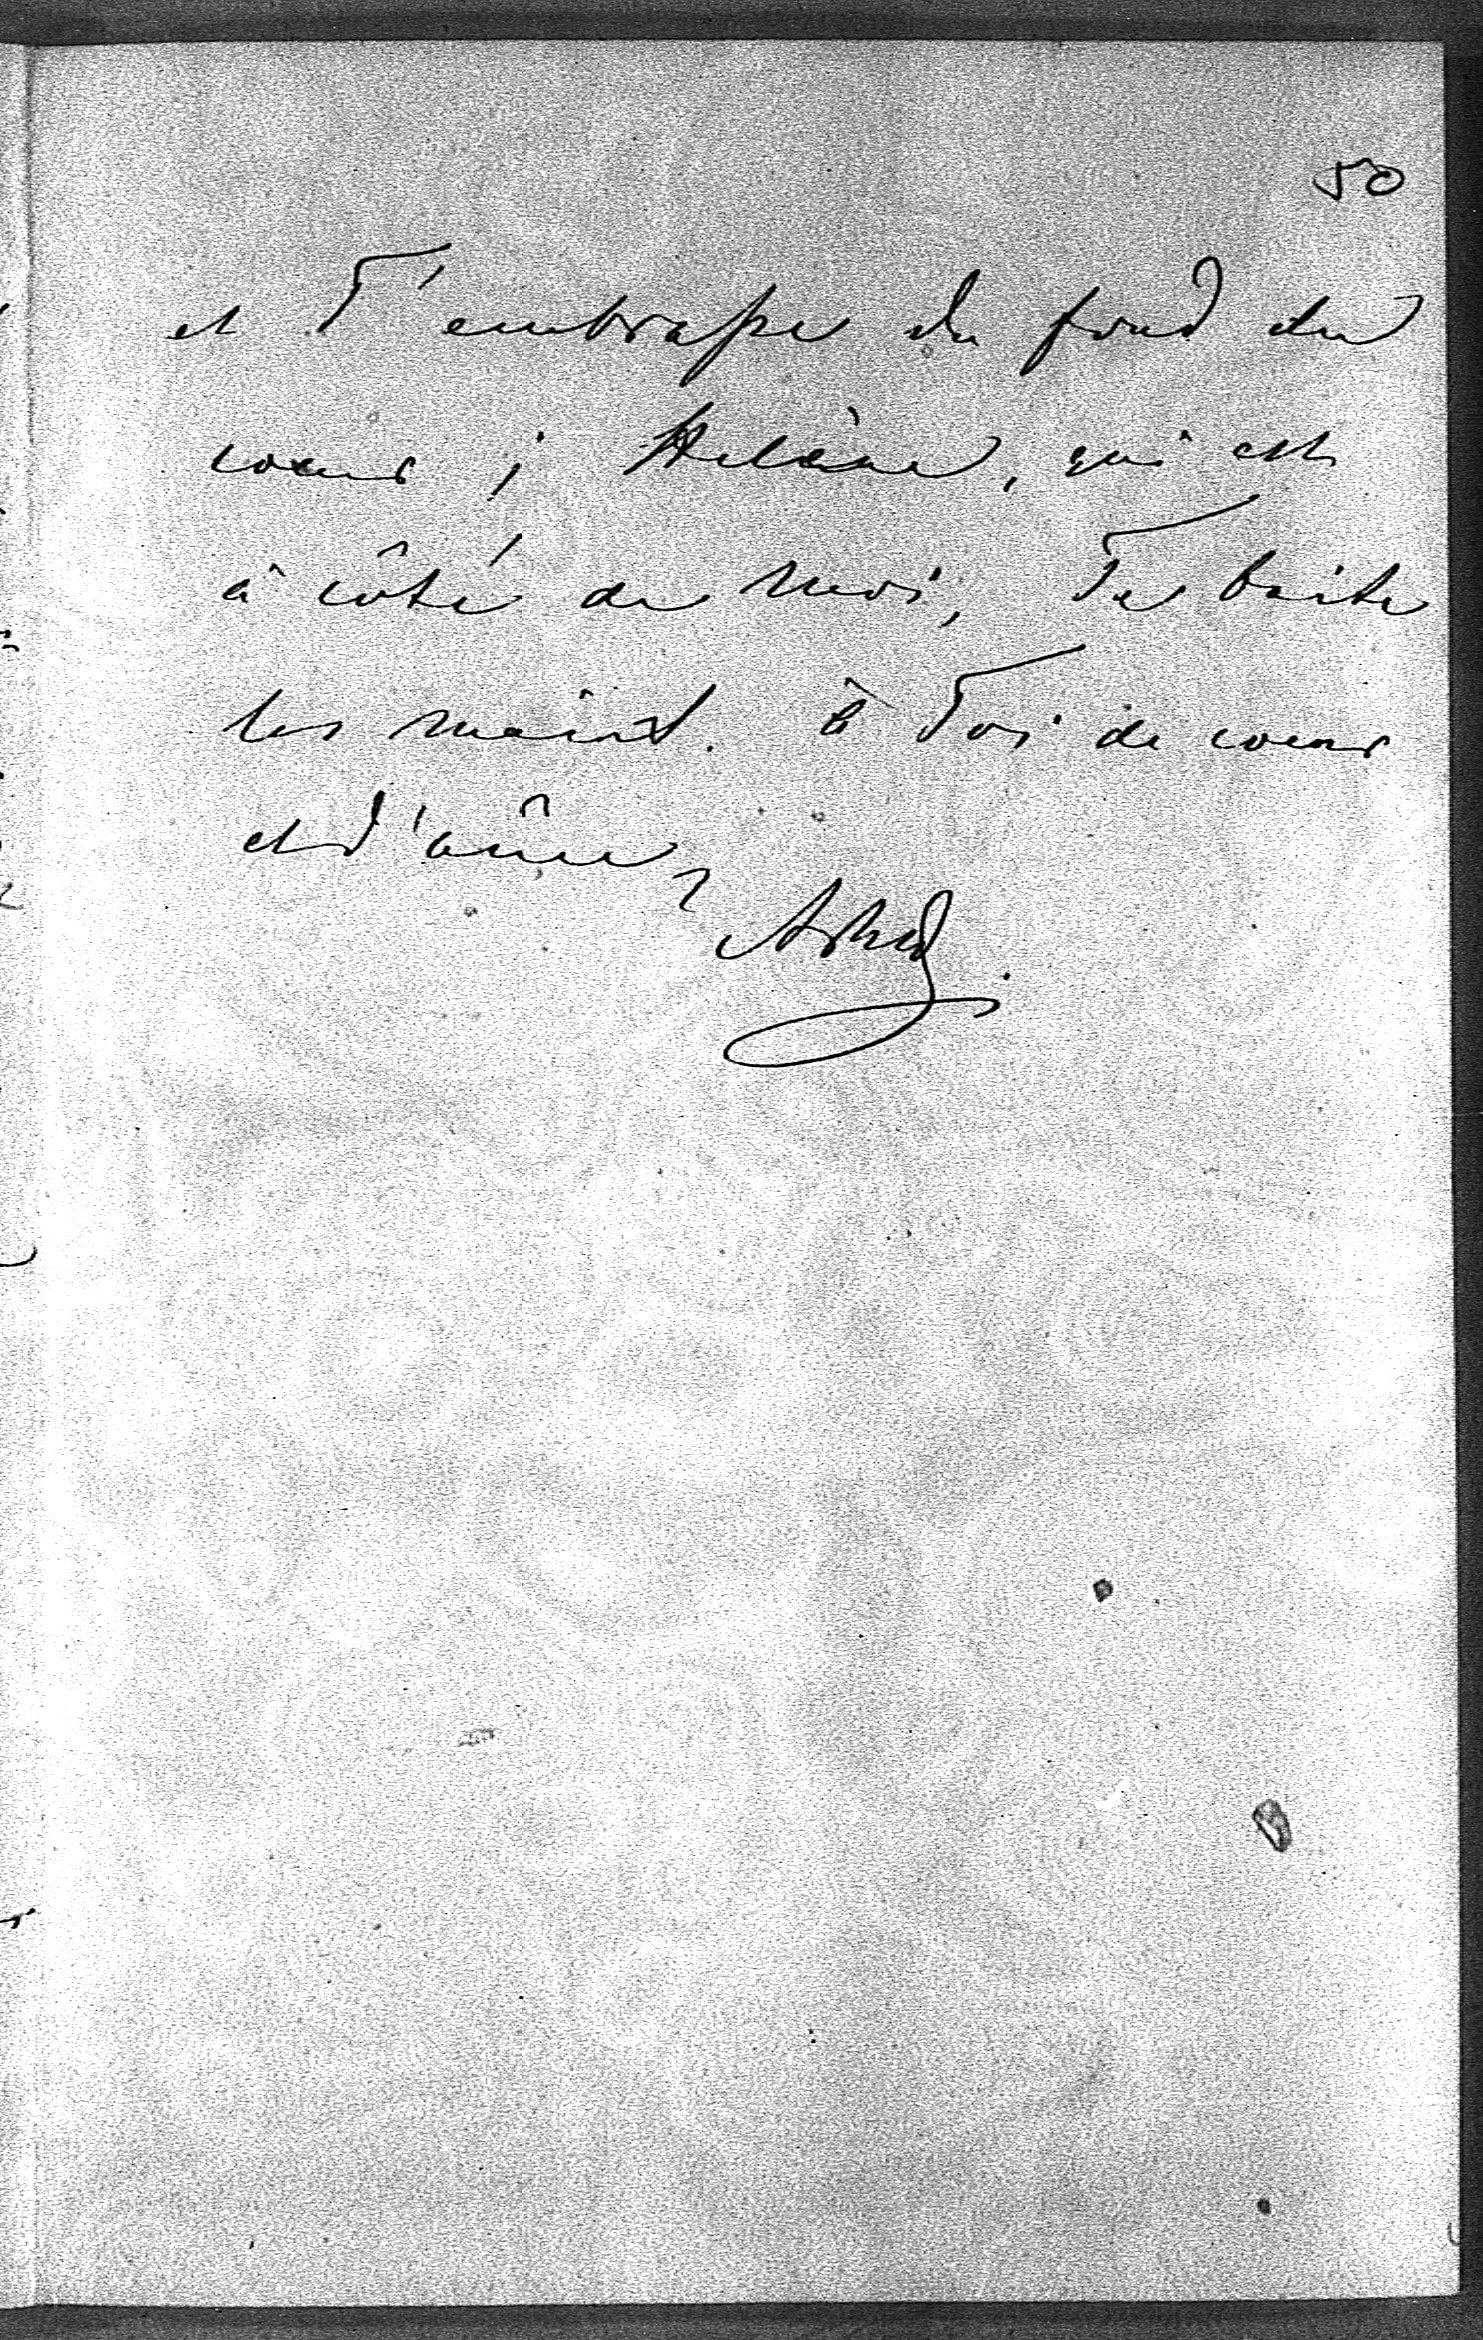 50
et T'embrasse du fond du
coeur ; Helène, qui est
à côté de moi, Te baise
les mains. à Toi de coeur
et d'âme,